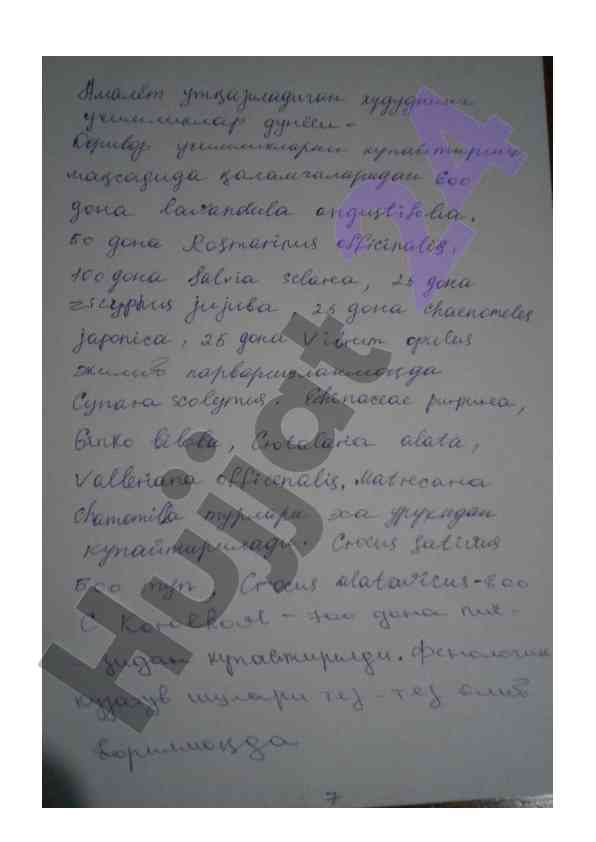 Амалёт утқазиладиган худуднинг
усимликлар дунёси -
Доривор усимликларни купайтириш
мақсадида қаламчаларидан 600
дона lavandula angustifolia,
50 дона Rosmarinus officinalis,
100 дона Salvia sclarea, 25 дона
zizyphus jujuba 25 дона chaenomeles
japonica, 25 дона Viburnum opulus
экилиб парваришланмоқда
Cynara scolymus. Echinaceae purpurea,
Ginko biloba, Crotalaria alata,
Valleriana officenalis, Matricaria
chamomilla турлари эса уруғидан
купайтирилади. Crocus Sativus
500 туп, Crocus alatavicus-800
C Korolkovii - 100 дона пиё-
зидан купайтирилди. Фенологик
кузатув ишлари тез-тез олиб
борилмоқда
7
Hujjat 24